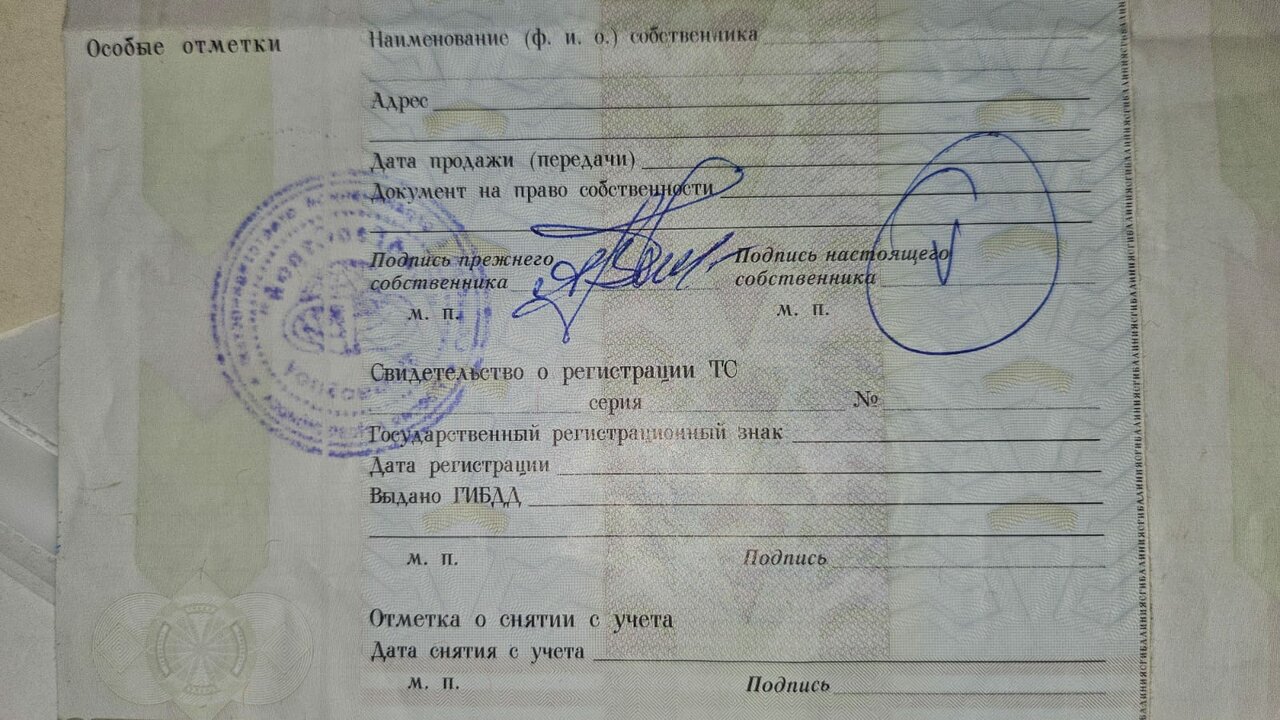 Особые отметки
Наименование (ф. и. о.) собственника
Адрес
Дата продажи (передачи)
Документ на право собственности
Подпись прежнего собственника
Подпись настоящего собственника
м. п.
м. п.
Свидетельство о регистрации ТС
серия №
Государственный регистрационный знак
Дата регистрации
Выдано ГИБДД
м. п. Подпись
Отметка о снятии с учета
Дата снятия с учета
м. п. Подпись